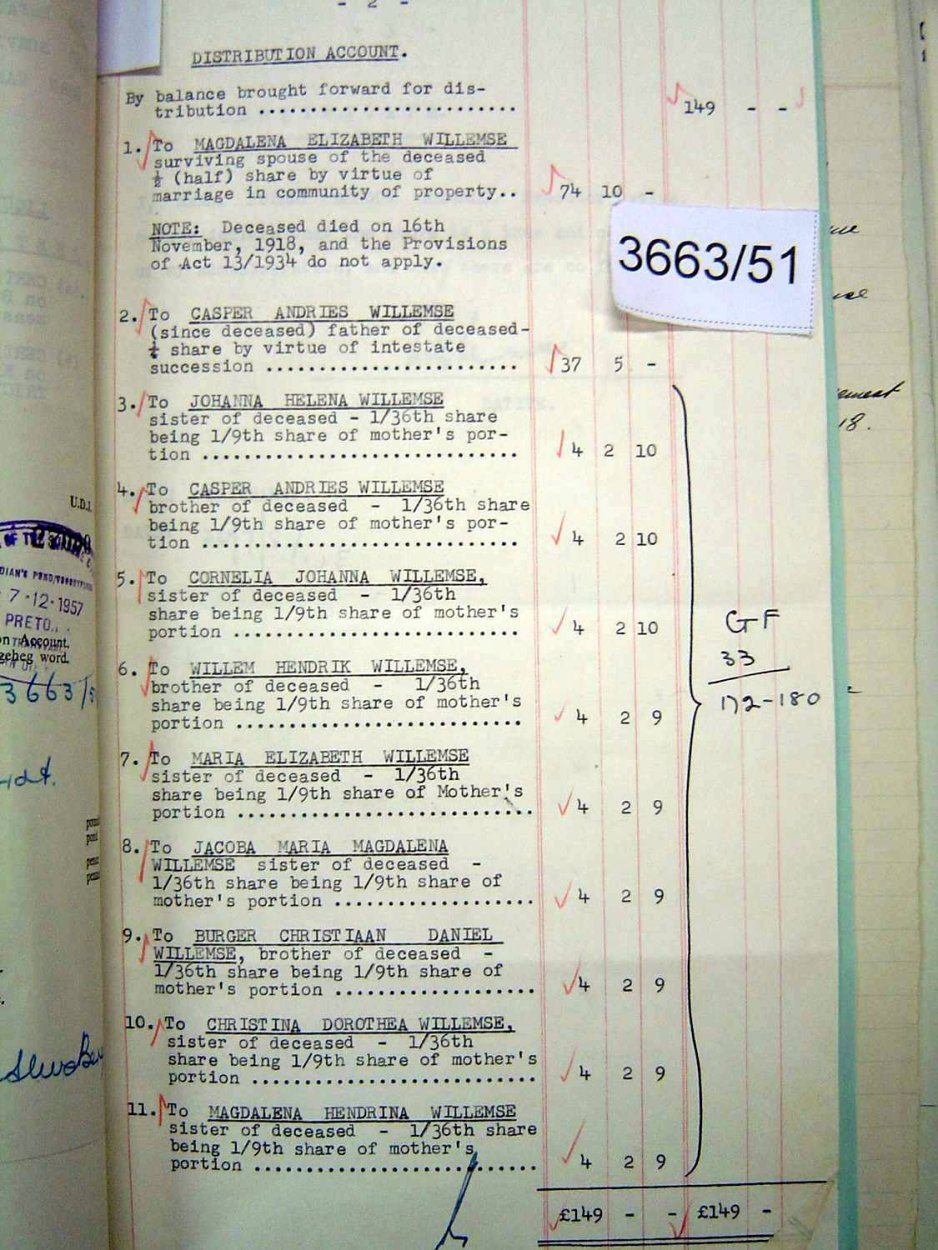 - 2 -
DISTRIBUTION ACCOUNT.
By balance brought forward for dis-
tribution ........................ 149 - -
1. To MAGDALENA ELIZABETH WILLEMSE
surviving spouse of the deceased
½ (half) share by virtue of
marriage in community of property.. 74 10 -
NOTE: Deceased died on 16th
November, 1918, and the Provisions
of Act 13/1934 do not apply.
3663/51
2. To CASPER ANDRIES WILLEMSE
(since deceased) father of deceased-
¼ share by virtue of intestate
succession ....................... 37 5 -
3. To JOHANNA HELENA WILLEMSE
sister of deceased - 1/36th share
being 1/9th share of mother's por-
tion ............................. 4 2 10
4. To CASPER ANDRIES WILLEMSE
brother of deceased - 1/36th share
being 1/9th share of mother's por-
tion ............................. 4 2 10
5. To CORNELIA JOHANNA WILLEMSE,
sister of deceased - 1/36th
share being 1/9th share of mother's
portion .......................... 4 2 10
6. To WILLEM HENDRIK WILLEMSE,
brother of deceased - 1/36th
share being 1/9th share of mother's
portion .......................... 4 2 9
7. To MARIA ELIZABETH WILLEMSE
sister of deceased - 1/36th
share being 1/9th share of Mother's
portion ........................... 4 2 9
8. To JACOBA MARIA MAGDALENA
WILLEMSE sister of deceased -
1/36th share being 1/9th share of
mother's portion .................. 4 2 9
9. To BURGER CHRISTIAAN DANIEL
WILLEMSE, brother of deceased -
1/36th share being 1/9th share of
mother's portion .................. 4 2 9
10. To CHRISTINA DOROTHEA WILLEMSE,
sister of deceased - 1/36th
share being 1/9th share of mother's
portion .......................... 4 2 9
11. To MAGDALENA HENDRINA WILLEMSE
sister of deceased - 1/36th share
being 1/9th share of mother's
portion .......................... 4 2 9
£149 - - £149 -
GF
33
172-180
U.D.J.
7-12-1957
PRETO
on Account.
zeheg word.
3663/5
18.